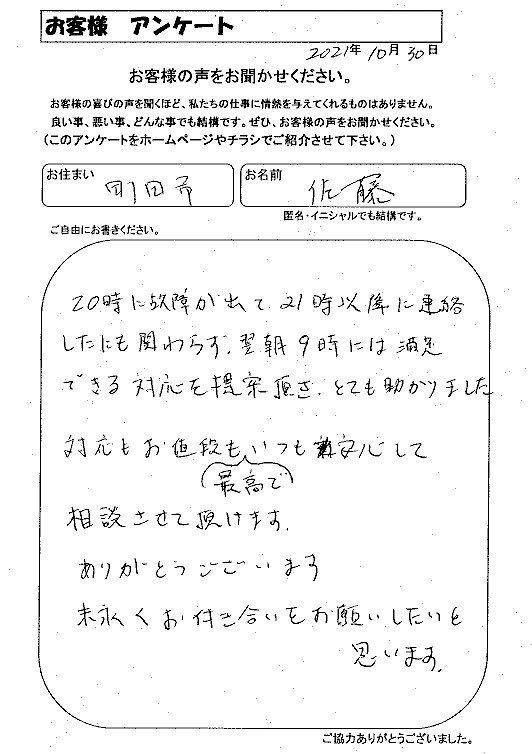 お客様 アンケート
2021年10月30日
お客様の声をお聞かせください。
お客様の喜びの声を聞くほど、私たちの仕事に情熱を与えてくれるものはありません。
良い事、悪い事、どんな事でも結構です。ぜひ、お客様の声をお聞かせください。
(このアンケートをホームページやチラシでご紹介させて下さい。)
お住まい 町田市
お名前 佐藤
匿名・イニシャルでも結構です。
ご自由にお書きください。
20時に故障が出て、21時以降に連絡
したにも関わらず、翌朝9時には満足
できる対応を提案頂き、とても助かりました
対応もお値段もいつも安心して
最高で
相談させて頂けます。
ありがとうございます
末永くお付き合いをお願いしたいと
思います。
ご協力ありがとうございました。